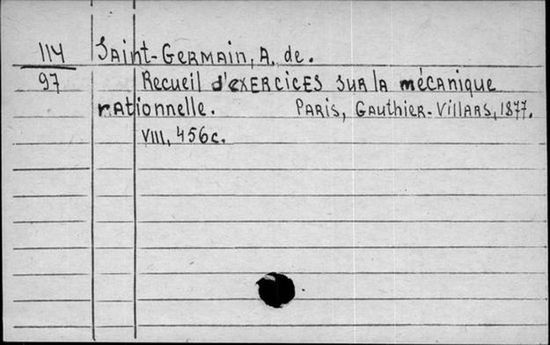 114 Saint-Germain, A. de.
97 Recueil d'exercices sur la mécanique
rationnelle. Paris, Gauthier-Villars, 1877.
VIII, 456c.